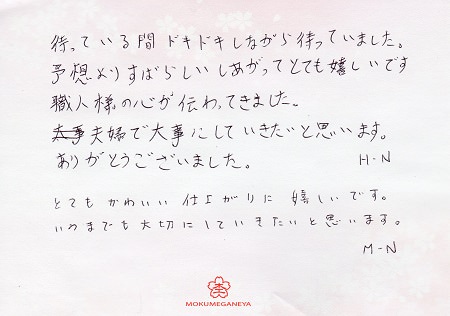 待っている間ドキドキしながら待っていました。
予想よりすばらしいしあがってとても嬉しいです
職人様の心が伝わってきました。
大事夫婦で大事にしていきたいと思います。
ありがとうございました。
H-N
とてもかわいい仕上がりに嬉しいです。
いつまでも大切にしていきたいと思います。
M-N
MOKUMEGANEYA